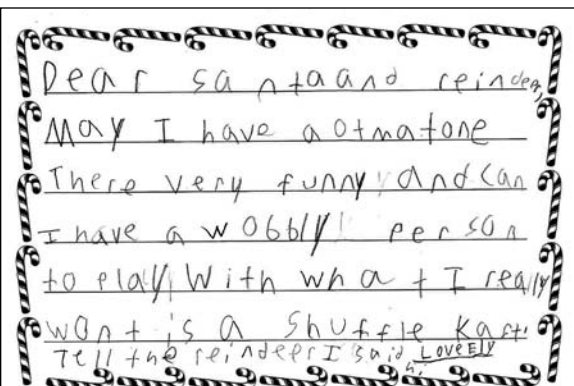 Dear santa and reindeer,
May I have a otmatone
There very funny and can
I have a wobbly person
to play With what I really
want is a Shuffle Kart.
Tell the reindeer I said hi.
LOVE Ely